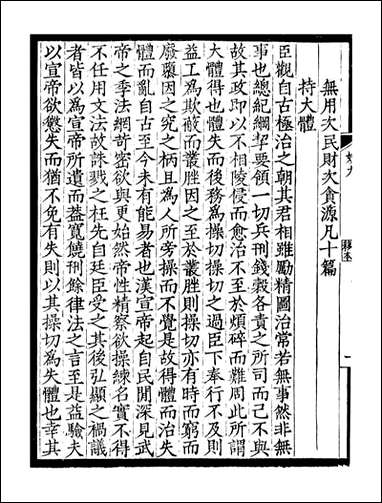 無用次民財次貪源凡十篇
持大體
臣觀自古極治之朝其君相雖勵精圖治常若無事然非無
事也總紀綱挈要領一切兵刑錢穀各責之所司而己不與
故其政即以不相陵侵而愈治不至於煩碎而難周此所謂
大體得也體失而後務為操切操切之過臣下奉行不及則
益工為欺蔽而叢脞因之至於叢脞則操切亦有時而窮而
廢驟因之究之柄且為人所旁操而不覺是故得體而治失
體而亂自古至今未有能易者也漢宣帝起自民閒深見武
帝之季法網竒密欲與更始然帝性精察欲操練名實不得
不任用文法故誅戮之枉先自廷臣受之其後弘顯之禍議
者皆以為宣帝所遺而蓋寬饒刑餘律法之言至是益驗夫
以宣帝欲懲失而猶不免有失則以其操切為失體也幸其